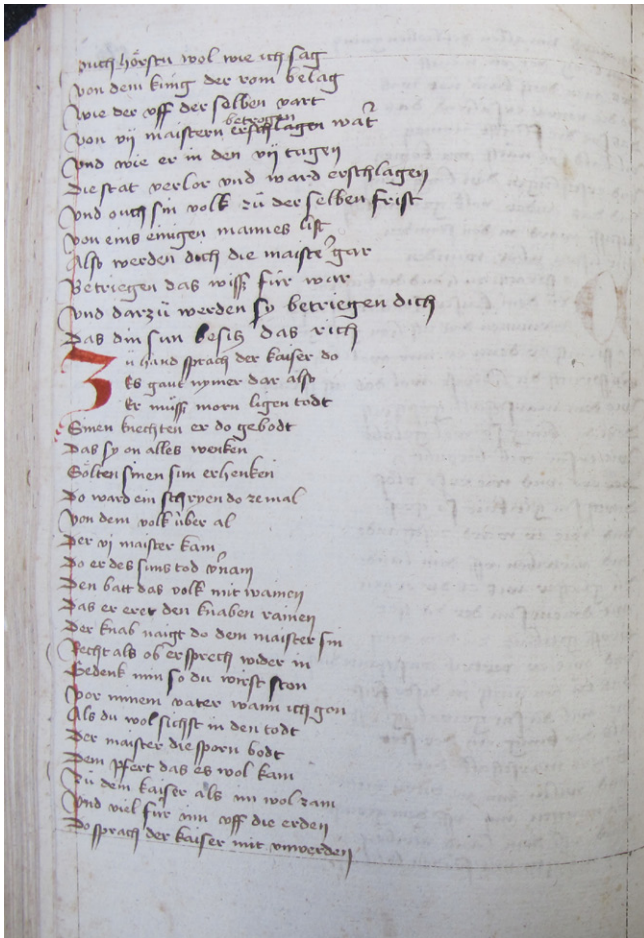 Ouch hörstu wol wie ich sag
Von dem king der rom belag
Wie der vff der selben vart
betrogen
Von vij maistern erschlagen wart
Vnd wie er in den vij tagen
Die stat verlor vnd ward erschlagen
Vnd ouch sin volk zů der selben frist
Von eins einigen mannes list
Also werden dich die maister gar
Betriegen das wiss für war
Vnd darzů werden sy betriegen dich
Das din sun besitz das rich
Zů hand sprach der kaiser do
Es gaut nymer dar also
Er můss morn ligen todt
Sinen knechten er do gebodt
Das sy on alles wenken
Sölten sinen sun erhenken
Do ward ein schryen do zemal
Von dem volk über al
Der vj maister kam
Do er des suns tod vernam
Den batt das volk mit wainen
Das er eret den knaben rainen
Der knab naigt do dem maister sin
Recht als ob er sprech wider in
Gedenk min so du wirst ston
Vor minem vater wann ich gon
Als du wol sichst in den todt
Der maister die sporn bodt
Dem pfert das es wol kam
Zů dem kaiser als im wol zam
Vnd viel für inn vff die erden
Do sprach der kaiser mit vnwerden